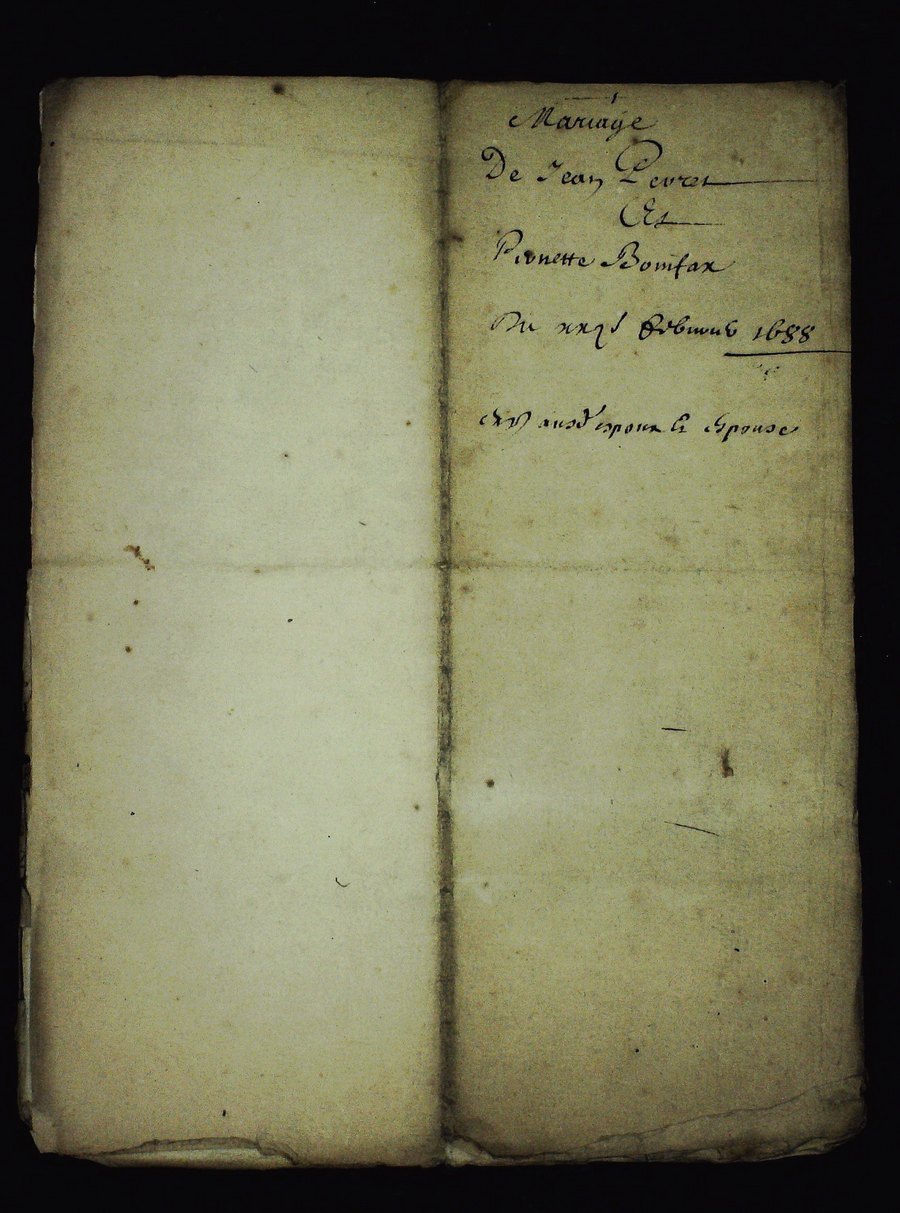 Mariage
De Jean Peyret
Et
Pironette Bonifax
Du xxqe febvrier 1688
ausd espoux & Espouse